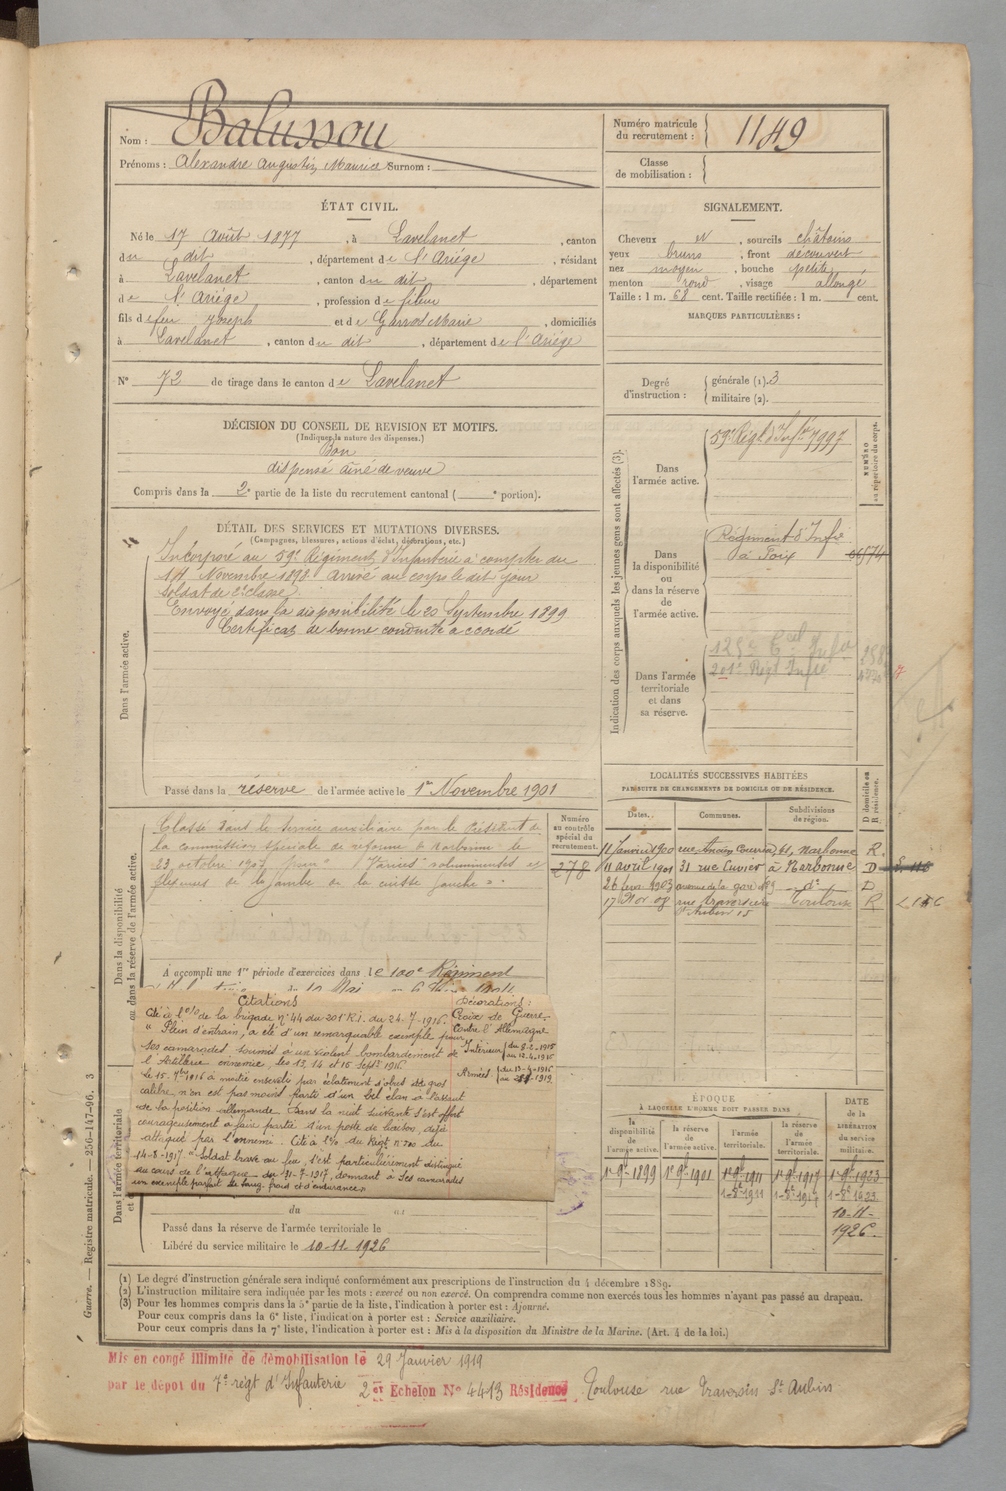 Nom : Balussou
Prénoms : Alexandre Augustin Maurice Surnom :
Numéro matricule du recrutement : 1149
Classe de mobilisation :
ÉTAT CIVIL.
Né le 17 Août 1877, à Lavelanet, canton
du dit, département de l'Ariége, résidant
à Lavelanet, canton du dit, département
de l'Ariége, profession de fileur
fils de feu Joseph et de Garros Marie, domiciliés
à Lavelanet, canton du dit, département de l'Ariége
N° 72 de tirage dans le canton de Lavelanet
SIGNALEMENT.
Cheveux et, sourcils châtains
yeux bruns, front découvert
nez moyen, bouche petite
menton rond, visage allongé
Taille : 1 m. 68 cent. Taille rectifiée : 1 m. cent.
MARQUES PARTICULIÈRES :
Degré d'instruction : générale (1). 3
militaire (2).
DÉCISION DU CONSEIL DE REVISION ET MOTIFS.
(Indiquer la nature des dispenses.)
Bon
dispensé aîné de veuve
Compris dans la 2e partie de la liste du recrutement cantonal ( e portion).
DÉTAIL DES SERVICES ET MUTATIONS DIVERSES.
(Campagnes, blessures, actions d'éclat, décorations, etc.)
Dans l'armée active.
Incorporé au 59e Régiment d'Infanterie à compter du
14 Novembre 1898 arrivé au corps le dit jour
soldat de 2e classe
Envoyé dans la disponibilité le 20 Septembre 1899
Certificat de bonne conduite accordé
Passé dans la réserve de l'armée active le 1er Novembre 1901
Indication des corps auxquels les jeunes gens sont affectés (3).
NUMÉRO au répertoire du corps.
Dans l'armée active.
59e Régt d'Infrie 7997
Dans la disponibilité ou dans la réserve de l'armée active.
Régiment d'Infie
à Foix
Dans l'armée territoriale et dans sa réserve.
201e Regt Infie
LOCALITÉS SUCCESSIVES HABITÉES
PAR SUITE DE CHANGEMENTS DE DOMICILE OU DE RÉSIDENCE.
Dates. Communes. Subdivisions de région. D domicile ou R résidence.
11 Janvier 1900 rue Ancien Courrier, 41, Narbonne R.
11 avril 1901 31 rue Cuvier à Narbonne D
26 févr 1903 avenue de la gare do D
17 9bre 08 rue traversière St Aubin 15 Toulouse R
Dans la disponibilité ou dans la réserve de l'armée active.
Numéro au contrôle spécial du recrutement.
278
Classé dans le service auxiliaire par le Président de
la commission spéciale de réforme de Narbonne le
23 octobre 1907 pour "Varices volumineuses et
flexueuses de la jambe de la cuisse gauche".
A accompli une 1re période d'exercices dans le 100e Régiment
Citations
Cité à l'o/ de la brigade n° 44 du 201e R.I. du 24-7-1916.
" Plein d'entrain, a été d'un remarquable exemple pour
ses camarades soumis à un violent bombardement de
l'Artillerie ennemie, les 13, 14 et 15 Septbre 1916.
le 15-7bre 1916 à moitié enseveli par éclatement d'obus de gros
calibre, n'en est pas moins parti d'un bel élan à l'assaut
de la position allemande. Dans la nuit suivante s'est offert
courageusement à faire partie d'un poste de liaison, déjà
attaqué par l'ennemi. Cité à l'o/ du Régt n° 700 du
14-8-1917. "Soldat brave au feu s'est particulièrement distingué
au cours de l'attaque du 31-7-1917, donnant à ses camarades
un exemple parfait de sang froid et d'endurance."
Décorations :
Croix de Guerre.
Contre l'Allemagne
Intérieur du 8-2-1915
au 12-4-1916
Armées du 13-4-1916
Dans l'armée territoriale
du au
Passé dans la réserve de l'armée territoriale le
Libéré du service militaire le 10-11-1926
ÉPOQUE
À LAQUELLE L'HOMME DOIT PASSER DANS
la disponibilité de l'armée active. la réserve de l'armée active. l'armée territoriale. la réserve de l'armée territoriale.
DATE de la LIBÉRATION du service militaire.
1er 9bre 1899 1er 9bre 1901 1er 9bre 1911 1er 9bre 1917 1er 9bre 1923
10-11-
1926.
(1) Le degré d'instruction générale sera indiqué conformément aux prescriptions de l'instruction du 4 décembre 1889.
(2) L'instruction militaire sera indiquée par les mots : exercé ou non exercé. On comprendra comme non exercés tous les hommes n'ayant pas passé au drapeau.
(3) Pour les hommes compris dans la 5e partie de la liste, l'indication à porter est : Ajourné.
Pour ceux compris dans la 6e liste, l'indication à porter est : Service auxiliaire.
Pour ceux compris dans la 7e liste, l'indication à porter est : Mis à la disposition du Ministre de la Marine. (Art. 4 de la loi.)
Guerre. — Registre matricule. — 256-147-96. 3
Mis en congé illimité de démobilisation le 29 Janvier 1919
par le dépôt du 7e régt d'Infanterie 2e Echelon N° 4413 Résidence Toulouse rue Traversin St Aubin